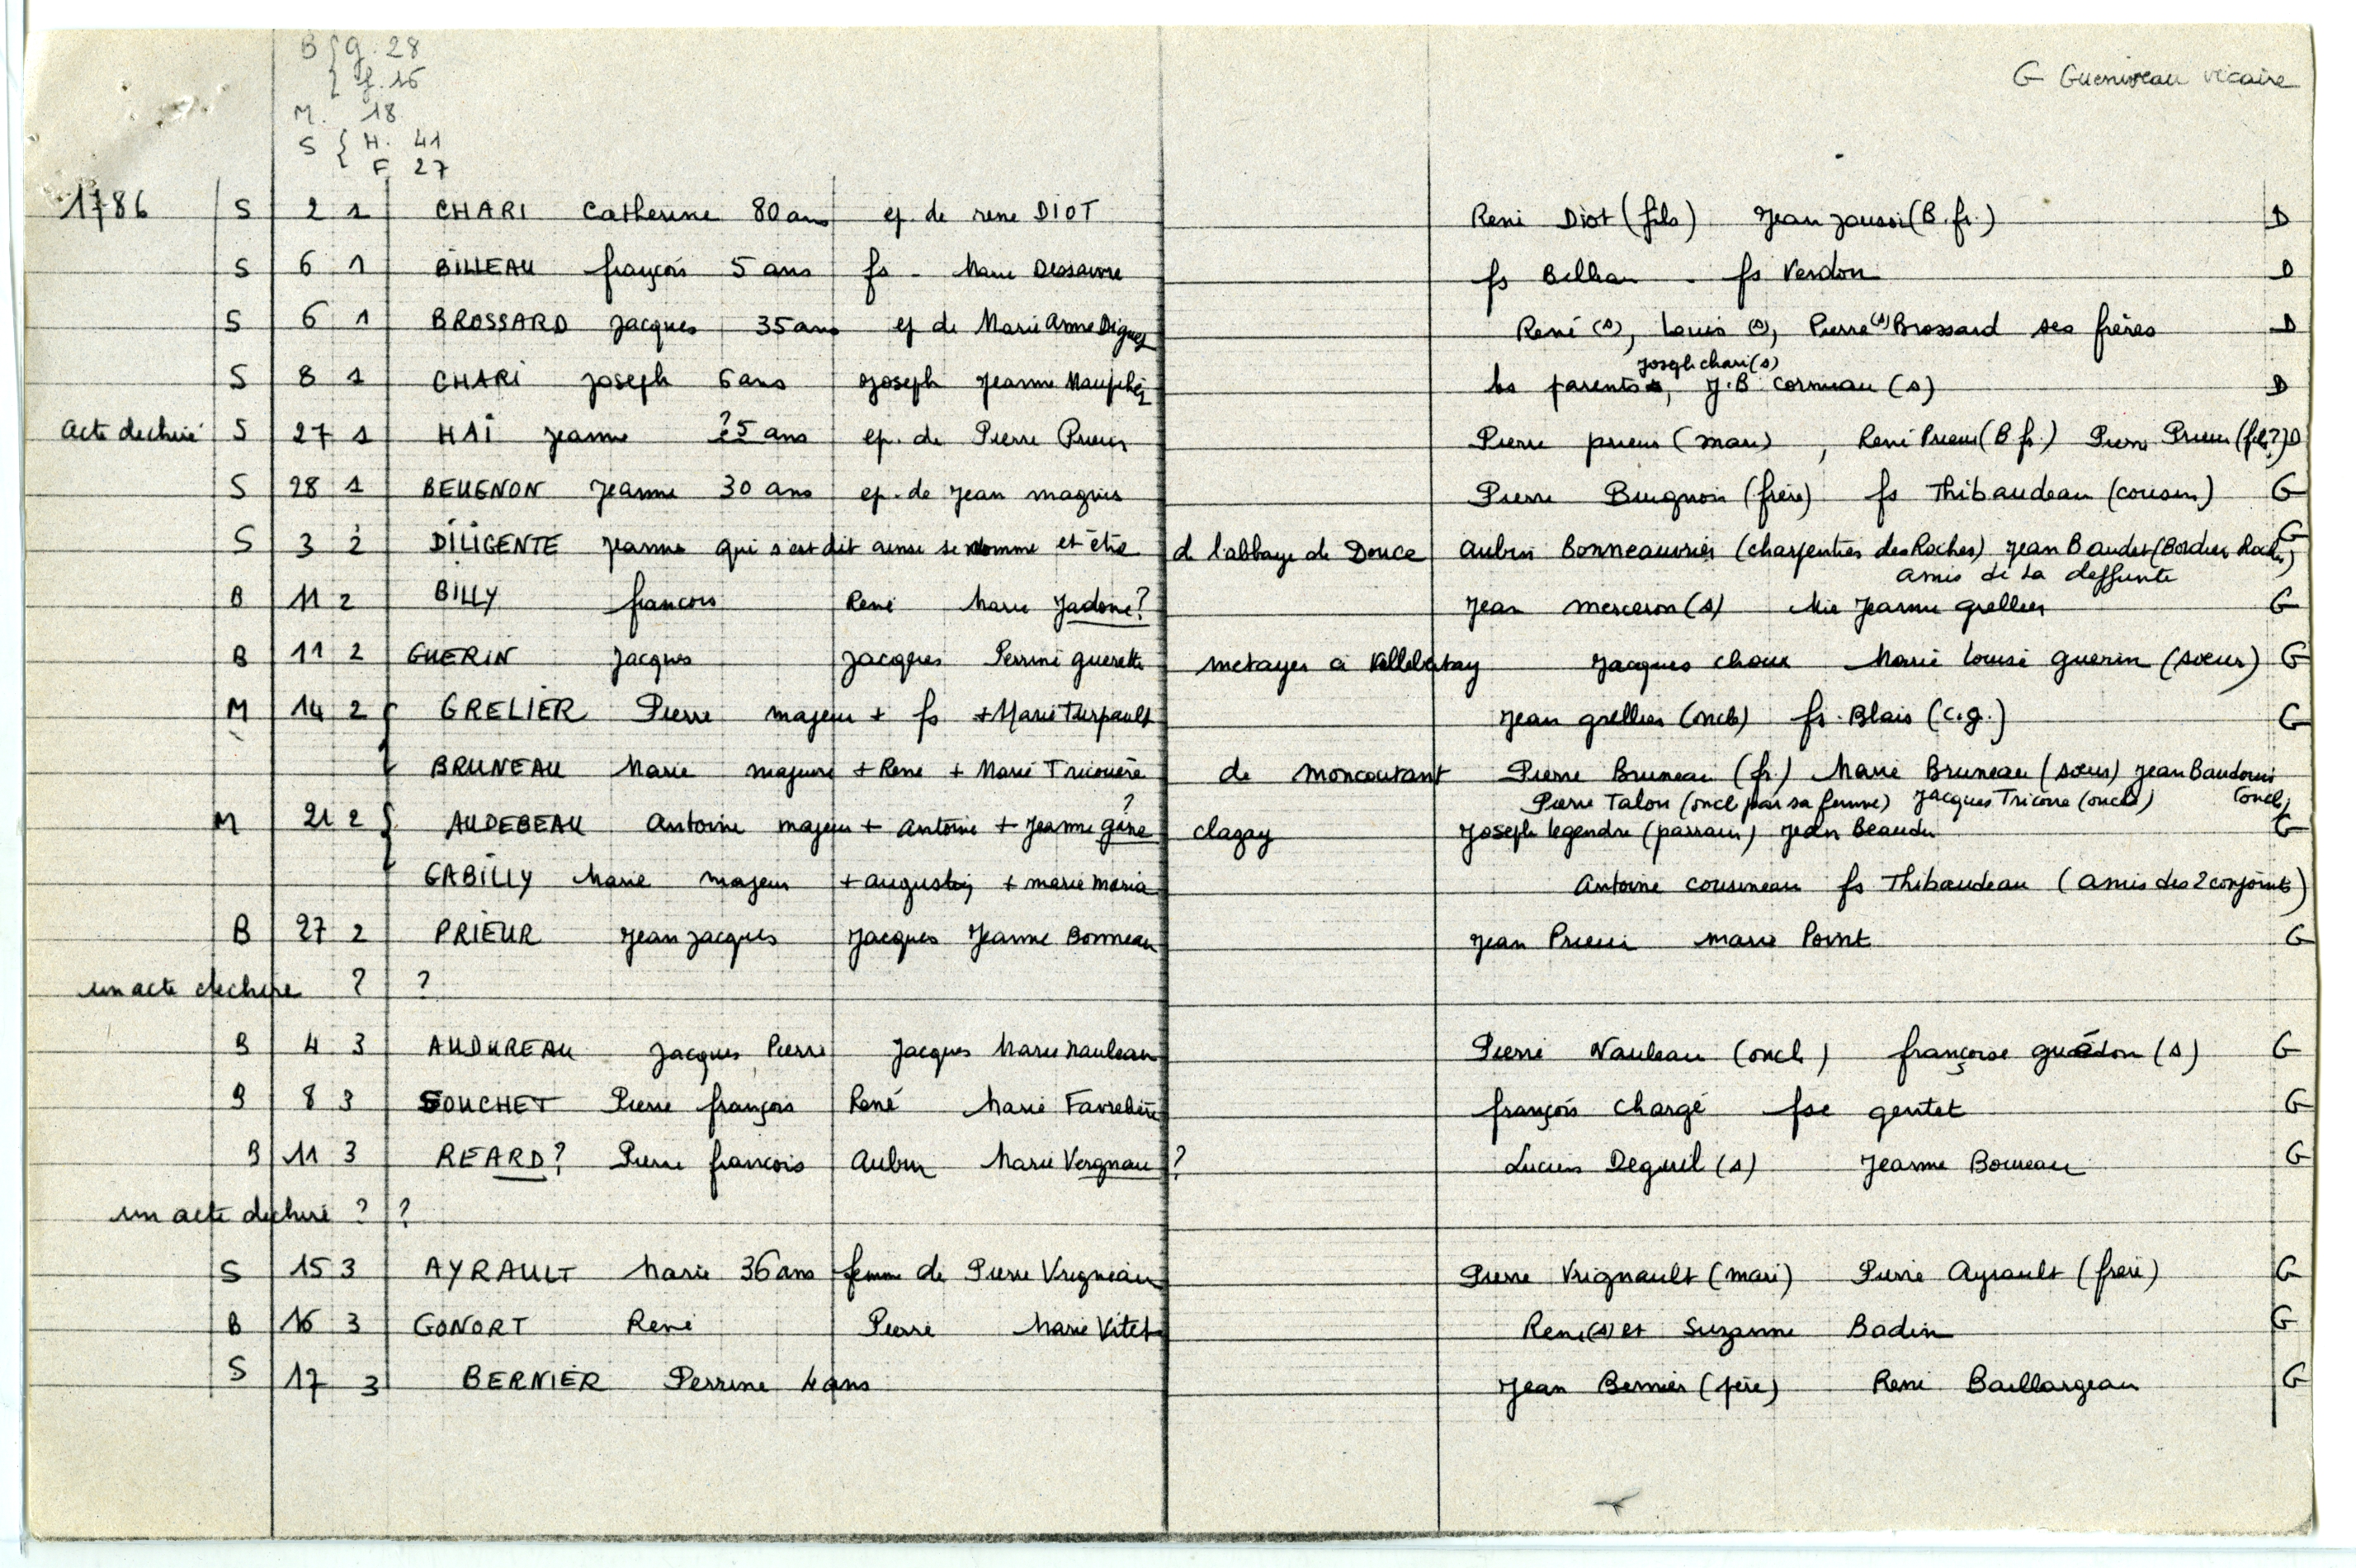 B { g. 28
{ f. 16
M. 18
S { H. 41
F 27
G Gueniveau vicaire
1786 S 2 1 CHARI Catherine 80 ans ep. de rene DIOT René Diot (fils) Jean Jousse (B. fr.) D
S 6 1 BILLEAU françois 5 ans fs - Marie Dessaivre fs Billeau - fs Verdon D
S 6 1 BROSSARD Jacques 35 ans ep de Marie Anne Diguet René (s), Louis (s), Pierre (s) Brossard ses frères D
Joseph chari (s)
S 8 1 CHARI Joseph 6 ans Joseph Jeanne Maupher les parents, J.B cormeau (s) D
acte dechiré S 27 1 HAI Jeanne ?5 ans ep. de Pierre Prieur Pierre prieur (mari), René Prieur (B fr.) Pierre Prieur (fils?) D
S 28 1 BEUGNON Jeanne 30 ans ep. de Jean magnis Pierre Beugnon (frère) fs Thibaudeau (cousin) G
S 3 2 DILIGENTE Jeanne qui s'est dit ainsi se nomme et être de l'abbaye de Douce Aubin Bonneauvrier (charpentier des Roches) Jean Baudet (Bordier Roches) G
amis de la deffunte
B 11 2 BILLY francois René Marie Jadone? Jean merceron (s) Mie Jeanne grellier G
B 11 2 GUERIN Jacques Jacques Perrine guerette metayer a Villebertay Jacques choux Marie louise guerin (soeur) G
M 14 2 { GRELIER Pierre majeur + fs + Marie Turpault Jean grellier (oncle) fs. Blais (c.g.) G
BRUNEAU Marie majeure + René + Marie Tricouère de moncoutant Pierre Bruneau (fr.) Marie Bruneau (soeur) Jean Baudouin (oncle)
Pierre Talon (oncle par sa femme) Jacques Tricoire (oncle)
M 21 2 { AUDEBEAU Antoine majeur + Antoine + Jeanne gâne ? clazay Joseph legendre (parrain) Jean Beaudu G
GABILLY Marie majeur + augustin + marie maria Antoine cousineau fs Thibaudeau (amis des 2 conjoints)
B 27 2 PRIEUR Jean Jacques Jacques Jeanne Bonneau Jean Prieur marie Point G
un acte dechiré ? ?
B 4 3 AUDUREAU Jacques Pierre Jacques Marie Nauleau Pierre Nauleau (oncle) françoise guédon (s) G
B 8 3 SOUCHET Pierre françois René Marie Favrelière françois chargé fse gentet G
B 11 3 REARD? Pierre francois Aubin Marie Vergnau ? Lucien Deguil (s) Jeanne Bouneau G
un acte dechiré ? ?
S 15 3 AYRAULT Marie 36 ans femme de Pierre Vrigneau Pierre Vrignault (mari) Pierre Ayrault (frère) G
B 16 3 GONORT René Pierre Marie Vitet René (s) et Suzanne Badin G
S 17 3 BERNIER Perrine 4 ans Jean Bernier (père) René Baillargeau G